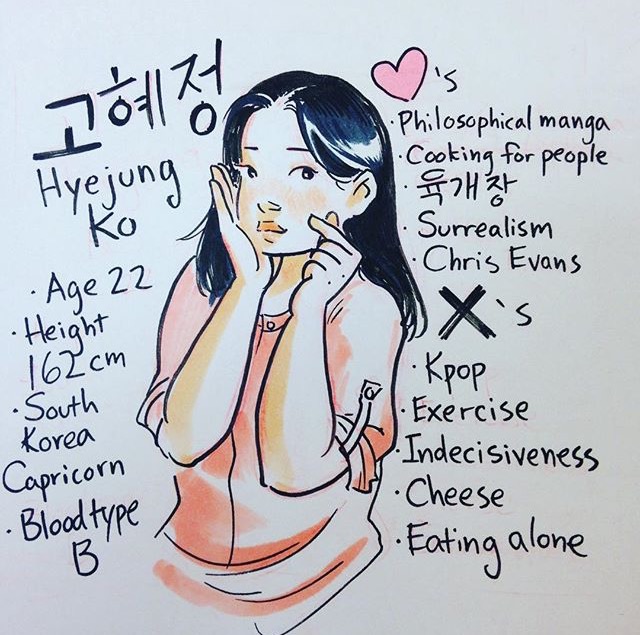 고혜정
Hyejung
Ko
· Age 22
· Height
162 cm
· South
Korea
Capricorn
· Blood type
B
's
· Philosophical manga
· Cooking for people
· 육개장
· Surrealism
· Chris Evans
X's
· Kpop
· Exercise
· Indecisiveness
· Cheese
· Eating alone